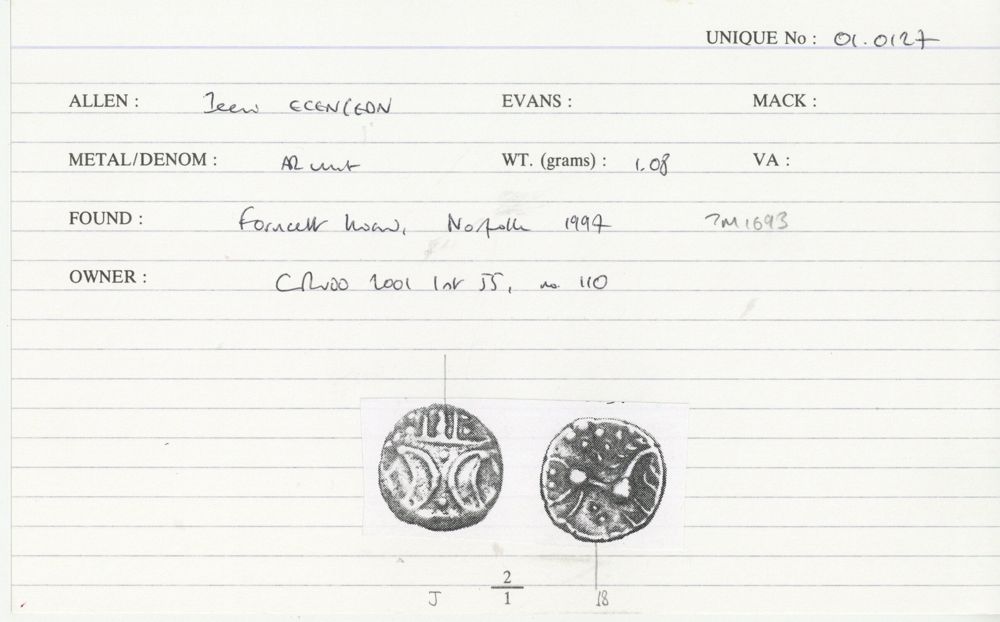 UNIQUE No : 01.0127
ALLEN : Iceni ECEN/EDN EVANS : MACK :
METAL/DENOM : AR unit WT. (grams) : 1.08 VA :
FOUND : Forncett hoard, Norfolk 1997 ?M1693
OWNER : CRUDD 2001 list 55, no. 110
2
J 1 18